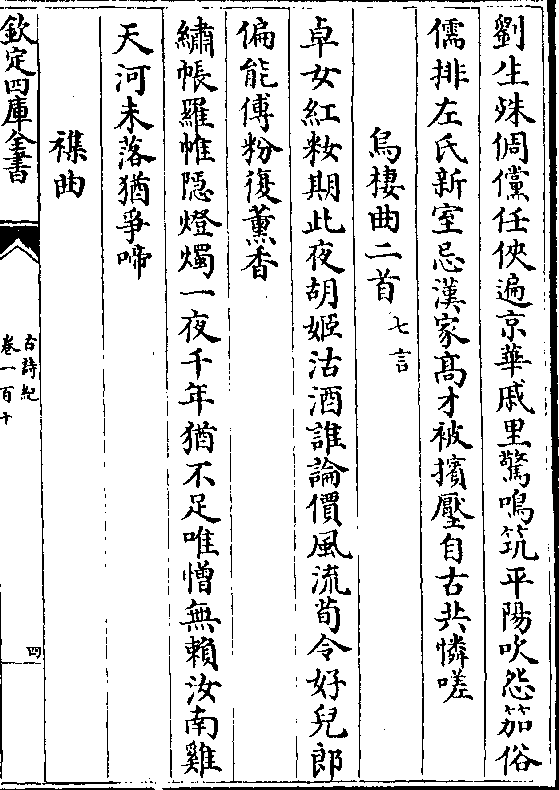 劉生殊倜儻任俠遍京華戚里驚鳴筑平陽吹怨笳俗
儒排左氏新室忌漢家髙才被擯壓自古共憐嗟
烏棲曲二首 七言
卓女紅粧期此夜胡姬沽酒誰論價風流荀令好兒郎
偏能傅粉復薰香
繡帳羅帷隠燈燭一夜千年猶不足唯憎無賴汝南雞
天河未落猶爭啼
襍曲
欽定四庫全書
古詩紀
卷一百十
四